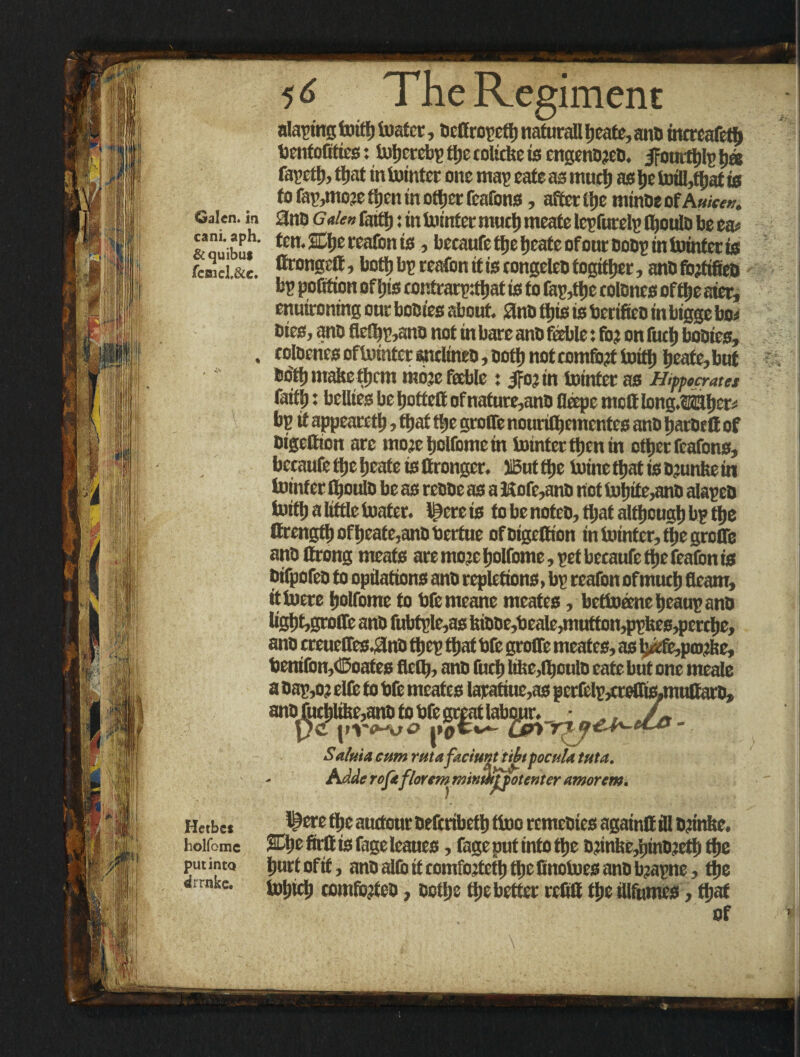 56 The Regiment
alaying with water, destroyeth naturall heate, and increaseth
ventosities: whereby the colicke is engendred. Fourthly he
sayeth, that in winter one may eate as much as he will, that is
to say, more then in other seasons, after the minde of Auicen.
And Galen saith: in winter much meate leysurely should be ea-
ten. The reason is, because the heate of our body in winter is
strongest, both by reason it is congeled togither, and fortified
by position of his contrary: that is to say, the coldnes of the aier,
enuironing our bodies about. And this is verified in bigge bo-
dies, and fleshy, and not in bare and feeble: for on such bodies,
coldenes of winter anclined, doth not comfort with heate, but
doth make them more feeble: For in winter as Hippocrates
saith: bellies be hottest of nature, and sleepe most long. Wher-
by it appeareth, that the grosse nourishementes and hardest of
digestion are more holsome in winter then in other seasons,
because the heate is stronger. But the wine that is drunke in
winter should be as redde as a Rose, and not white, and alayed
with a little water. Here is to be noted, that although by the
strength of heate, and vertue of digestion in winter, the grosse
and strong meats are more holsome, yet because the season is
disposed to opilations and repletions, by reason of much fleam,
it were holsome to vse meane meates, betweene heauy and
light, grosse and subtyle, as kidde, veale, mutton, pykes, perche,
and creuesses. And they that vse grosse meates, as byefe, porke,
venison, Goates flesh, and such like, should eate but one meale
a day, or else to vse meates laxatiue, as persely, cressis, mustard,
and suchlike, and to vse great labour.
Saluia cum ruta faciunt tibi pocula tuta.
Adde rosæ florem minuit potenter amorem.
Here the auctour describeth two remedies against ill drinke.
The first is sage leaues, sage put into the drinke, hindreth the
hurt of it, and also it comforteth the sinowes and brayne, the
which comforted, dothe the better resist the ill fumes, that
of
Galen. in
cani. aph.
& quibus
semel.&c.
Herbes
holsome
put into
drrnke.